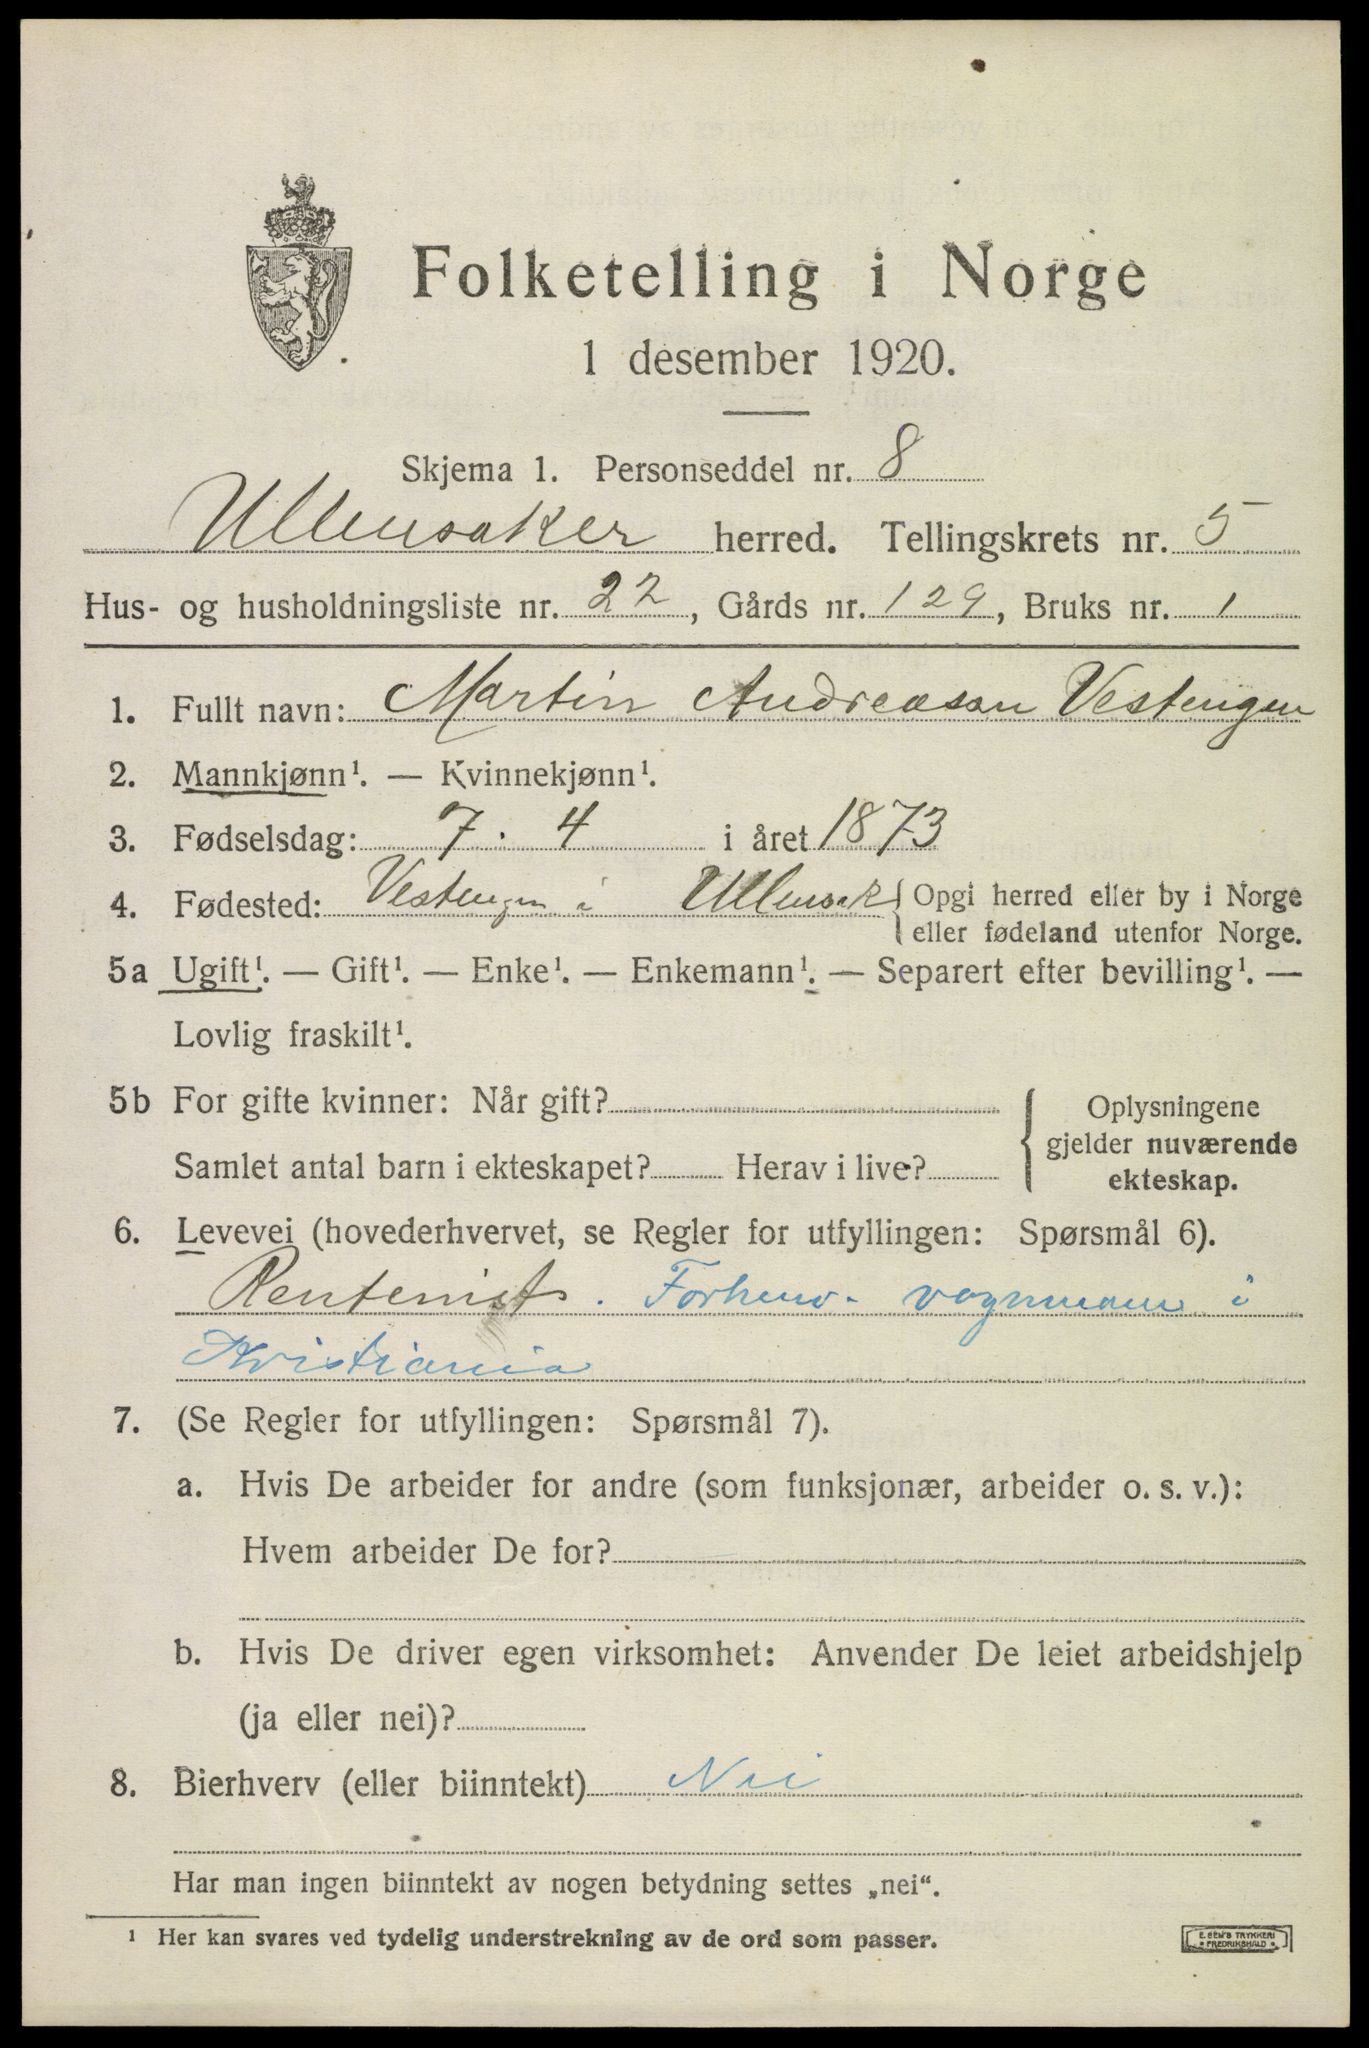 Folketelling i Norge
1 desember 1920.
Skjema 1. Personseddel nr. 8
Ullensaker herred. Tellingskrets nr. 5
Hus- og husholdningsliste nr. 22, Gårds nr. 129, Bruks nr. 1
1. Fullt navn: Martin Andreasen Vestengen
2. Mannkjønn¹. — Kvinnekjønn¹.
3. Fødselsdag: 7. 4 i året 1873
4. Fødested: Vestengen i Ullensak { Opgi herred eller by i Norge
eller fødeland utenfor Norge.
5a Ugift¹. — Gift¹. — Enke¹. — Enkemann¹. — Separert efter bevilling¹. —
Lovlig fraskilt¹.
5b For gifte kvinner: Når gift?
Samlet antal barn i ekteskapet? Herav i live?
Oplysningene
gjelder nuværende
ekteskap.
6. Levevei (hovederhvervet, se Regler for utfyllingen: Spørsmål 6).
Rentenist. Forhenv. vognmann i
Kristiania
7. (Se Regler for utfyllingen: Spørsmål 7).
a. Hvis De arbeider for andre (som funksjonær, arbeider o. s. v.):
Hvem arbeider De for?
b. Hvis De driver egen virksomhet: Anvender De leiet arbeidshjelp
(ja eller nei)?
8. Bierhverv (eller biinntekt) Nei
Har man ingen biinntekt av nogen betydning settes „nei“.
¹ Her kan svares ved tydelig understrekning av de ord som passer.
E. SEM'S TRYKKERI
• FREDRIKSHALD •